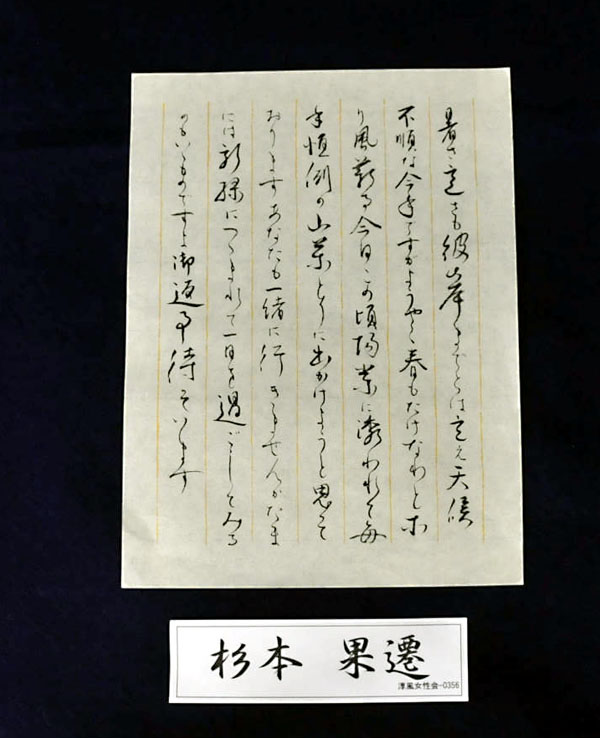 暑さ寒さも彼岸までとは言え天候
不順な今年ですがようやく春もたけなわとな
り風薫る今日この頃陽気に誘われて毎
年恒例の山菜とりに出かけようと思って
おりますあなたも一緒に行きませんかたま
には新緑につつまれて一日を過ごしてみる
のもいいものですよ御返事待っています
杉本 果遷
淳風女性会-0356